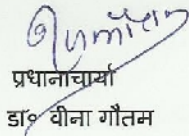 प्रधानाचार्या
डा॰ वीना गौतम